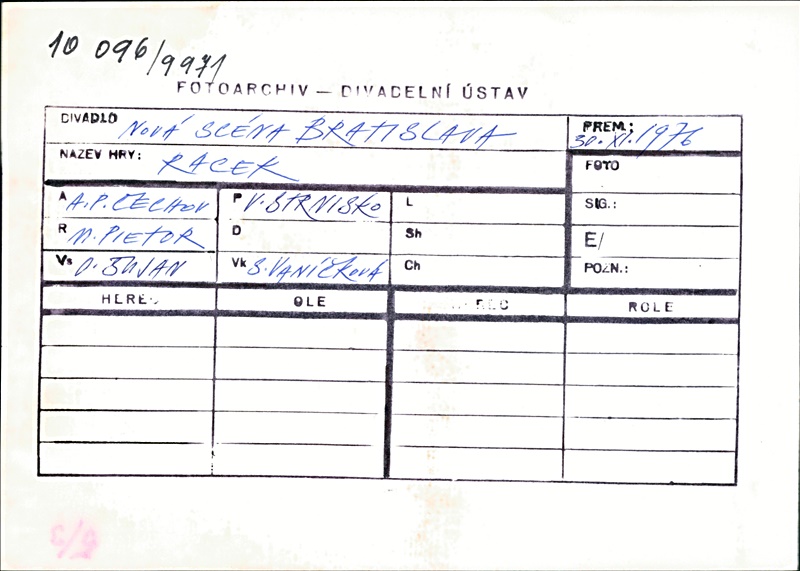 10 096/9971
FOTOARCHIV — DIVADELNÍ ÚSTAV
DIVADLO NOVÁ SCÉNA BRATISLAVA
PREM.: 30.XI.1976
NÁZEV HRY: RACEK
FOTO
A A.P. ČECHOV P V. STRNISKO L
SIG.:
R M. PIETOR D Sh
E/
Vs O. ŠUJAN Vk S. VANÍČKOVÁ Ch
POZN.:
HEREC OLE REC ROLE
5/5